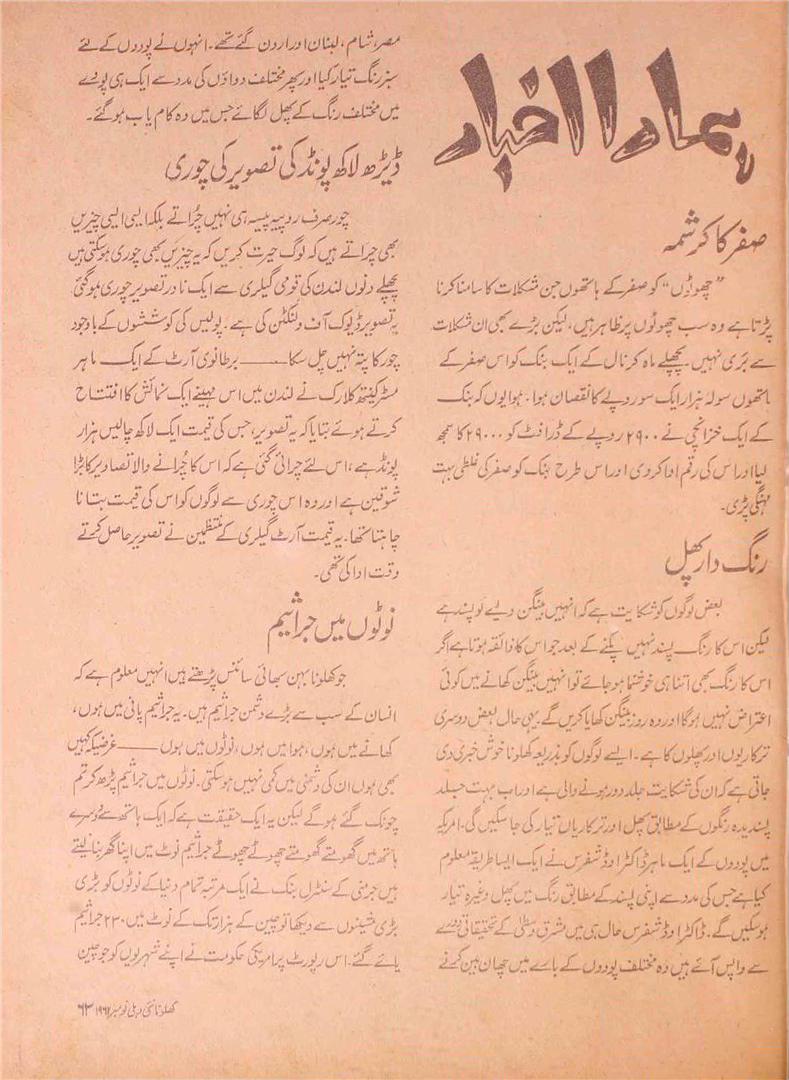 ہمارا اخبار
صفر کا کرشمہ
”چھوٹوں“ کو صفر کے ہاتھوں جن مشکلات کا سامنا کرنا
پڑتا ہے وہ سب چھوٹوں پر ظاہر ہیں، لیکن بڑے بھی ان مشکلات
سے بَری نہیں۔ پچھلے ماہ کرنال کے ایک بنک کو اس صفر کے
ہاتھوں سولہ ہزار ایک سو روپے کا نقصان ہوا۔ ہوا یوں کہ بنک
کے ایک خزانچی نے ۲۹۰۰ روپے کے ڈرافٹ کو ۲۹۰۰۰ کا سمجھ
لیا اور اس کی رقم ادا کر دی اور اس طرح بنک کو صفر کی غلطی بہت
مہنگی پڑی۔
رنگ دار پھل
بعض لوگوں کو شکایت ہے کہ انہیں بینگن ویسے تو پسند ہے
لیکن اس کا رنگ پسند نہیں پکنے کے بعد جو اس کا ذائقہ ہوتا ہے اگر
اس کا رنگ بھی اتنا ہی خوشنما ہو جائے تو انہیں بینگن کھانے میں کوئی
اعتراض نہیں ہوگا اور وہ روز بینگن کھایا کریں گے۔ یہی حال بعض دوسری
ترکاریوں اور پھلوں کا ہے۔ ایسے لوگوں کو بذریعہ کھلونا خوش خبری دی
جاتی ہے کہ ان کی شکایت جلد دور ہونے والی ہے اور اب بہت جلد
پسندیدہ رنگوں کے مطابق پھل اور ترکاریاں تیار کی جا سکیں گی۔ امریکہ
میں پودوں کے ایک ماہر ڈاکٹر اوڈ شفرس نے ایک ایسا طریقہ معلوم
کیا ہے جس کی مدد سے اپنی پسند کے مطابق رنگ میں پھل وغیرہ تیار
ہو سکیں گے۔ ڈاکٹر اوڈ شفرس حال ہی میں مشرق وسطیٰ کے تحقیقاتی دورے
سے واپس آئے ہیں وہ مختلف پودوں کے بارے میں چھان بین کرنے
مصر، شام، لبنان اور اردن گئے تھے۔ انہوں نے پودوں کے لئے
سبز رنگ تیار کیا اور پھر مختلف دواؤں کی مدد سے ایک ہی پودے
میں مختلف رنگ کے پھل لگائے جس میں وہ کام یاب ہو گئے۔
ڈیڑھ لاکھ پونڈ کی تصویر کی چوری
چور صرف روپیہ پیسہ ہی نہیں چُراتے بلکہ ایسی ایسی چیزیں
بھی چراتے ہیں کہ لوگ حیرت کریں کہ یہ چیزیں بھی چوری ہو سکتی ہیں
پچھلے دنوں لندن کی قومی گیلری سے ایک نادر تصویر چوری ہو گئی
یہ تصویر ڈیوک آف ولنگٹن کی ہے۔ پولیس کی کوششوں کے باوجود
چور کا پتہ نہیں چل سکا —— برطانوی آرٹ کے ایک ماہر
مسٹر کینتھ کلارک نے لندن میں اس مہینے ایک نمائش کا افتتاح
کرتے ہوئے بتایا کہ یہ تصویر، جس کی قیمت ایک لاکھ چالیس ہزار
پونڈ ہے، اس لئے چرائی گئی ہے کہ اس کا چُرانے والا تصاویر کا بڑا
شوقین ہے اور وہ اس چوری سے لوگوں کو اس کی قیمت بتانا
چاہتا تھا۔ یہ قیمت آرٹ گیلری کے منتظمین نے تصویر حاصل کرتے
وقت ادا کی تھی۔
نوٹوں میں جراثیم
جو کھلونا بہن بھائی سائنس پڑھتے ہیں انہیں معلوم ہے کہ
انسان کے سب سے بڑے دشمن جراثیم ہیں۔ یہ جراثیم پانی میں ہوں،
کھانے میں ہوں، ہوا میں ہوں، نوٹوں میں ہوں —— غرضیکہ کہیں
بھی ہوں ان کی دشمنی میں کمی نہیں ہو سکتی۔ نوٹوں میں جراثیم پڑھ کر تم
چونک گئے ہو گے لیکن یہ ایک حقیقت ہے کہ ایک ہاتھ سے دوسرے
ہاتھ میں گھومتے گھومتے چھوٹے چھوٹے جراثیم نوٹ میں اپنا گھر بنا لیتے
ہیں جرمنی کے سنٹرل بنک نے ایک مرتبہ تمام دنیا کے نوٹوں کو بڑی
بڑی مشینوں سے دیکھا تو چین کے ہزار تک کے نوٹ میں ۲۳۰ جراثیم
پائے گئے۔ اس رپورٹ پر امریکی حکومت نے اپنے شہریوں کو جو چین
کھلونا نئی دہلی نومبر ۱۹۶۱ ۶۳